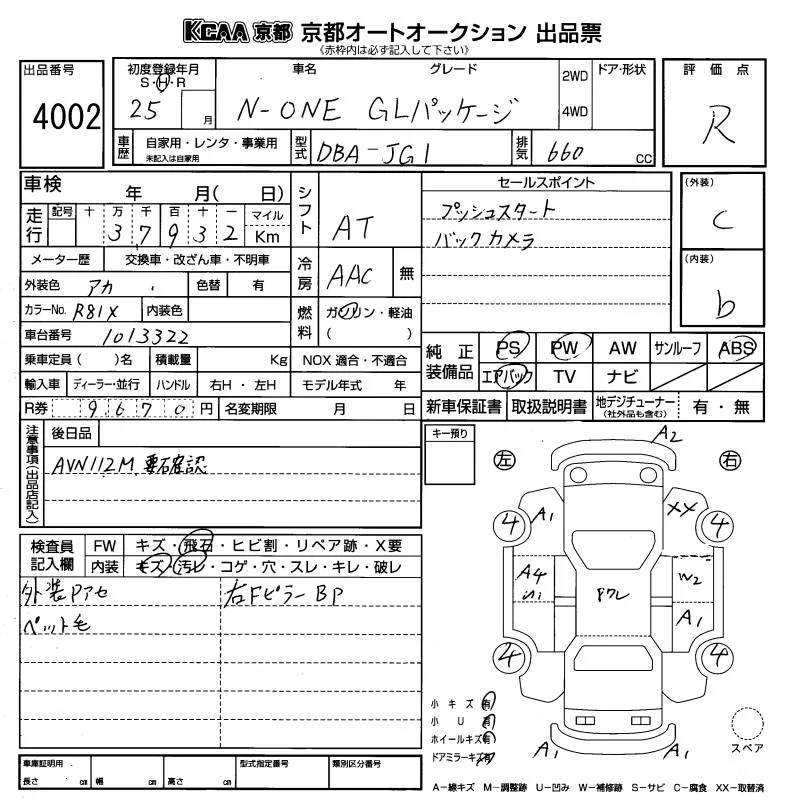 KCAA 京都 京都オートオークション 出品票
《赤枠内は必ず記入して下さい》
出品番号
4002
初度登録年月
S・H・R
25 月
車名 グレード
N-ONE GLパッケージ
2WD
4WD
ドア・形状
評価点
R
車歴 自家用・レンタ・事業用
未記入は自家用
型式 DBA-JG1
排気 660 cc
車検 年 月( 日)
走行 記号 十 万 千 百 十 一 マイル
3 7 9 3 2 Km
メーター歴 交換車・改ざん車・不明車
外装色 アカ 色替 有
カラーNo. R81X 内装色
車台番号 1013322
乗車定員( )名 積載量 Kg NOX 適合・不適合
輸入車 ディーラー・並行 ハンドル 右H・左H モデル年式 年
R券 9 6 7 0 円 名変期限 月 日
シフト AT
冷房 AAC 無
燃料 ガソリン・軽油
( )
セールスポイント
プッシュスタート
バックカメラ
(外装)
C
(内装)
b
純正装備品 PS PW AW サンルーフ ABS
エアバック TV ナビ
新車保証書 取扱説明書 地デジチューナー
(社外品も含む)
有・無
注意事項(出品店記入)
後日品
AVN112M 要確認
キー預り
左 右
A2
4 A1 XX 4
A4 W2
S1 PクレA1
4 4
A1 A1
検査員記入欄 FW キズ・飛石・ヒビ割・リペア跡・X要
内装 キズ・汚レ・コゲ・穴・スレ・キレ・破レ
外装Pアセ 右FピラーBP
ペット毛
小キズ 有
小U 有
ホイールキズ 有
ドアミラーキズ 有
スペア
車庫証明用
長さ cm 幅 cm 高さ cm
型式指定番号 類別区分番号
A-線キズ M-調整跡 U-凹み W-補修跡 S-サビ C-腐食 XX-取替済